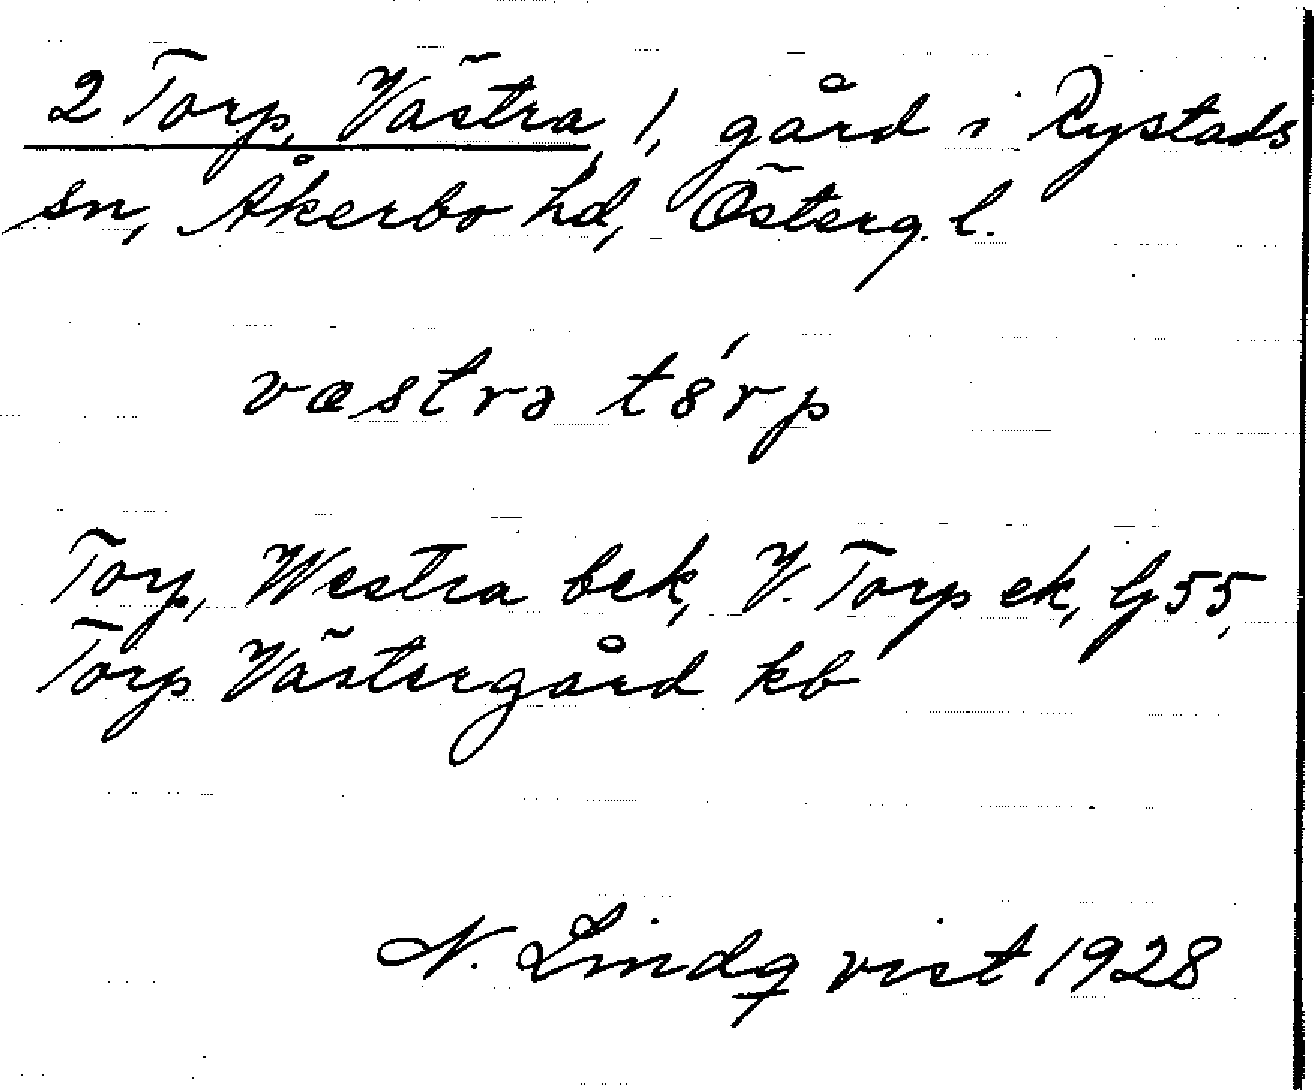 2 Torp, Västra, 1, gård i Rystads
sn, Åkerbo hd, Österg. l.
væstrə t8́rp
Torp, Westra bek, V. Torp ek, G 55,
Torp Västergård kb
N. Lindqvist 1928